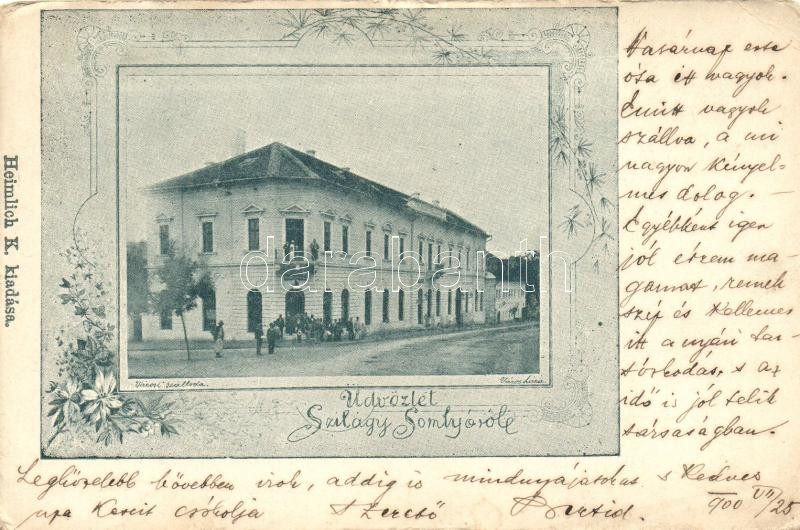 Heimlich K. kiadása.
Városi szálloda.
Városháza
Üdvözlet
Szilágy Somlyóról
darabanth
Vasárnap este
óta itt vagyok.
Emitt vagyok
szállva, a mi
nagyon kényel-
mes dolog. -
Egyébként igen
jól érzem ma-
gamat, remek
szép és kellemes
itt a nyári tar-
tózkodás, s az
idő is jól telik
társaságban.
Legközelebb bővebben irok, addig is mindnyájatokat s Kedves
csókolja Szerető
900 VII/25